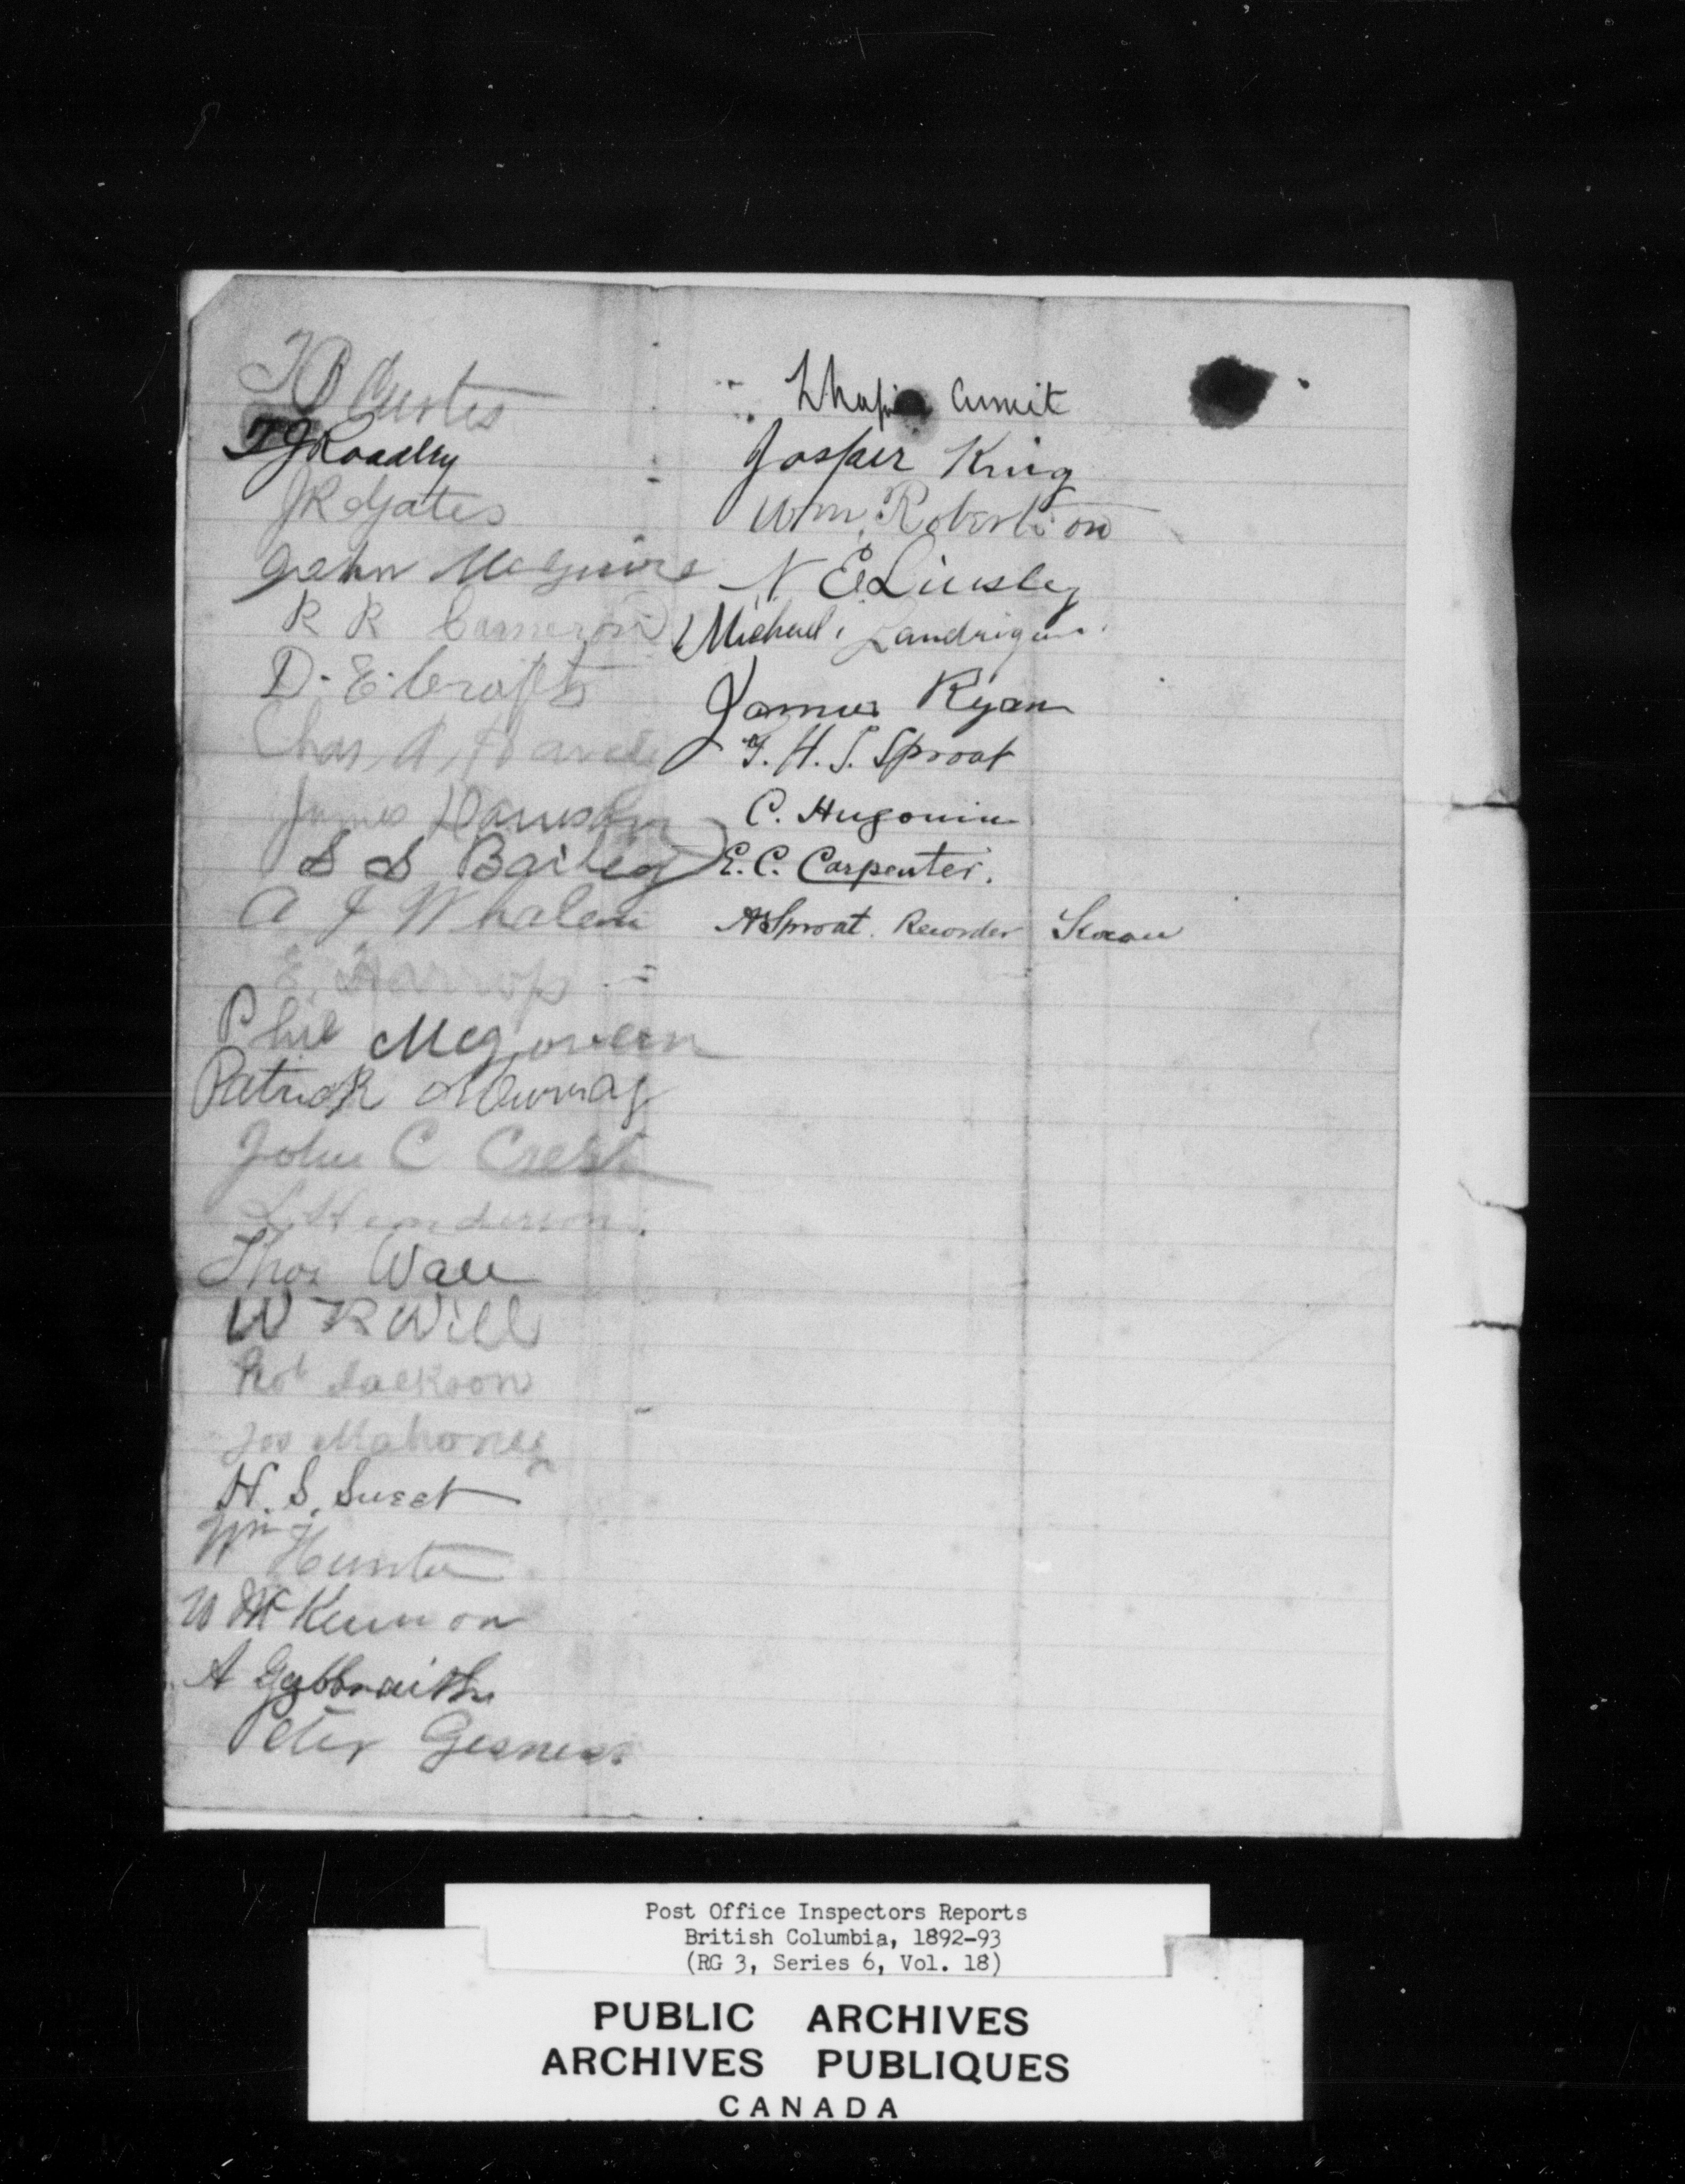 T B Curtis
T J Roadley
J R Gates
John McGuire
R R Cameron
D. E. Crofts
Chas A
James
S S Bailey
A J Whalen
E. Harrop
Phil McGovern
Patrick Murray
John C
L Henderson
Thos Wall
W R Will
Rob Jackson
Jos Mahoney
H. S. Sweet
Wm Hunter
W McKinnon
A Galbraith
Peter
Josper King
Wm Robertson
N E Linsley
Michael Landrigan
James Ryan
T. H. S. Sproat
C. Hugonin
E. C. Carpenter.
A Sproat. Recorder Slocan
Post Office Inspectors Reports
British Columbia, 1892-93
(RG 3, Series 6, Vol. 18)
PUBLIC ARCHIVES
ARCHIVES PUBLIQUES
CANADA